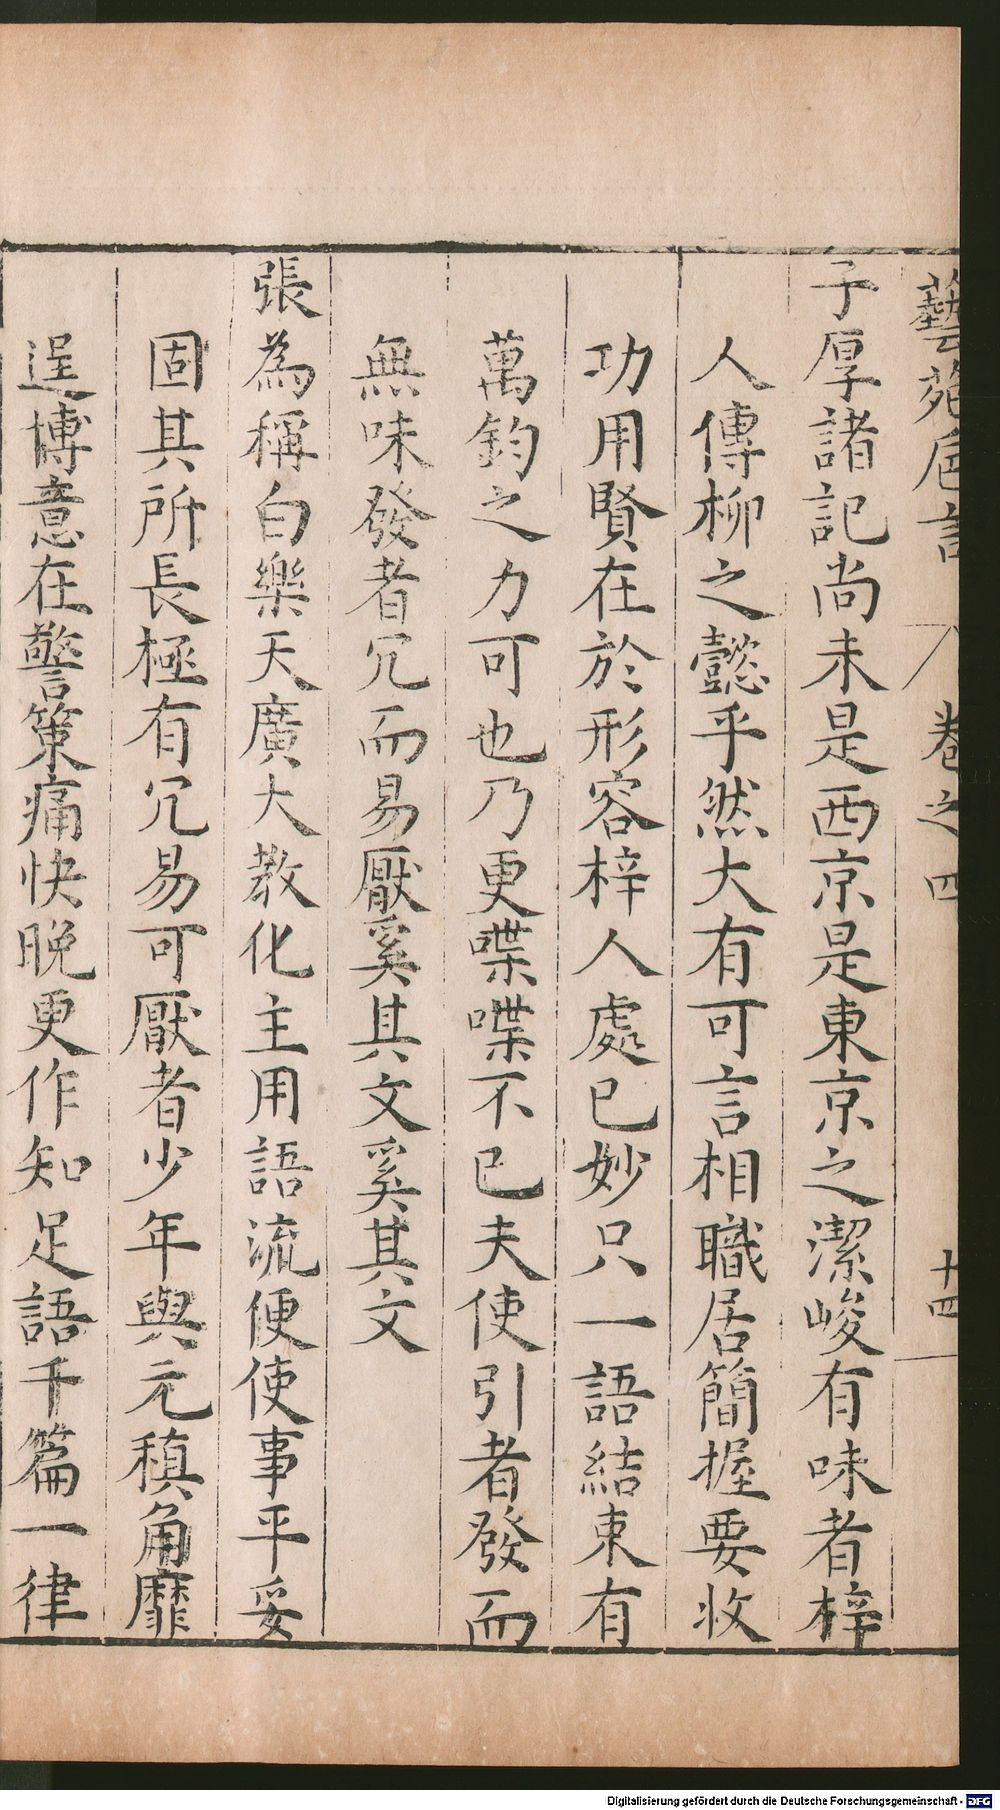 藝苑卮言 卷之四 十四
子厚諸記尚未是西京是東京之潔峻有味者梓
人傳柳之懿乎然大有可言相職居簡握要收
功用賢在於形容梓人處已妙只一語結束有
萬鈞之力可也乃更喋喋不已夫使引者發而
無味發者冗而易厭奚其文奚其文
張為稱白樂天廣大教化主用語流便使事平妥
固其所長極有冗易可厭者少年與元稹角靡
逞博意在警策痛快晚更作知足語千篇一律
Digitalisierung gefördert durch die Deutsche Forschungsgemeinschaft - DFG